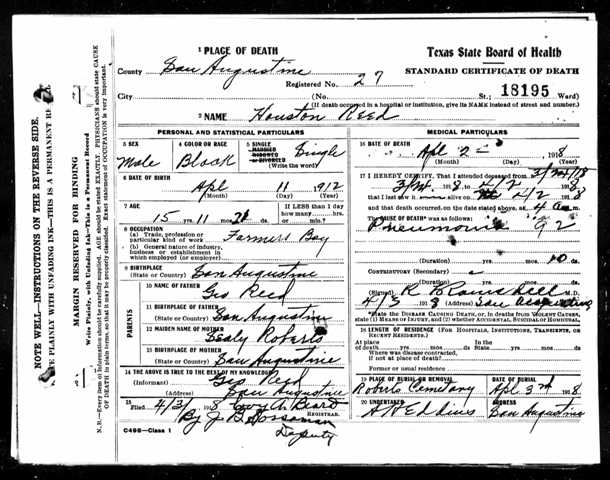 1 PLACE OF DEATH
Texas State Board of Health
County San Augustine
STANDARD CERTIFICATE OF DEATH
Registered No. 27
18195
City (No. St.; Ward)
(If death occurred in a hospital or institution, give its NAME instead of street and number.)
2 NAME Houston Reed
PERSONAL AND STATISTICAL PARTICULARS
3 SEX
Male
4 COLOR OR RACE
Black
5 SINGLE
MARRIED
WIDOWED
or DIVORCED
(Write the word)
Single
6 DATE OF BIRTH
Apl 11 1912
(Month) (Day) (Year)
7 AGE
15 yrs. 11 mos. 21 ds.
IF LESS than 1 day
how many hrs.
or min.
8 OCCUPATION
(a) Trade, profession or
particular kind of work
Farmers Boy
(b) General nature of industry,
business or establishment in
which employed (or employer)
9 BIRTHPLACE
(State or Country) San Augustine
PARENTS
10 NAME OF FATHER
Geo Reed
11 BIRTHPLACE OF FATHER
(State or Country) San Augustine
12 MAIDEN NAME OF MOTHER
Roberts
13 BIRTHPLACE OF MOTHER
(State or Country) San Augustine
14 THE ABOVE IS TRUE TO THE BEST OF MY KNOWLEDGE
(Informant) Geo Reed
(Address) San Augustine
15
Filed 4/3 1918
REGISTRAR.
By J B
Deputy
C49B—Class 1
MEDICAL PARTICULARS
16 DATE OF DEATH
Apl 2 1918
(Month) (Day) (Year)
17 I HEREBY CERTIFY, That I attended deceased from
1918, to 4/2 1918
that I last saw h alive on 4/2 1918
and that death occurred on the date stated above, at 4 a m.
The CAUSE OF DEATH* was as follows:
Pneumonia 92
(Duration) yrs. mos. 10 ds.
CONTRIBUTORY (Secondary)
(Duration) yrs. mos. ds.
(Signed) M.D.
4/3 191 (Address) San Augustine
*State the DISEASE CAUSING DEATH, or, in deaths from VIOLENT CAUSES, state (1) MEANS OF INJURY, and (2) whether ACCIDENTAL, SUICIDAL or HOMICIDAL.
18 LENGTH OF RESIDENCE (FOR HOSPITALS, INSTITUTIONS, TRANSIENTS, OR RECENT RESIDENTS.)
At place
of death yrs. mos. ds. In the
State yrs. mos. ds.
Where was disease contracted,
if not at place of death?
Former or usual residence
19 PLACE OF BURIAL OR REMOVAL
Roberts Cemetary
DATE OF BURIAL
Apl 3rd 1918
20 UNDERTAKER
A H Eddins
ADDRESS
San Augustine
NOTE WELL—INSTRUCTIONS ON THE REVERSE SIDE.
PLAINLY WITH UNFADING INK—THIS IS A PERMANENT
MARGIN RESERVED FOR BINDING
Write Plainly, with Unfading Ink—This is a Permanent Record
N. B.—Every item of information should be carefully supplied. AGE should be stated EXACTLY. PHYSICIANS should state CAUSE
OF DEATH in plain terms, so that it may be properly classified. Exact statement of OCCUPATION is very important.